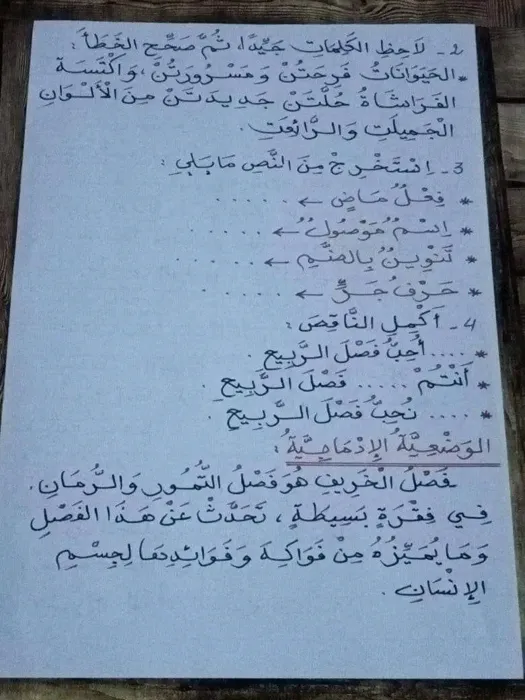 2- لَاحِظِ الكَلِمَاتِ جَيِّدًا، ثُمَّ صَحِّحِ الخَطَأَ:
.الحَيَوَانَاتُ فَرِحَتُنْ وَمَسْرُورَتُنْ، وَاكْتَسَةَ
الفَرَاشَاةُ حُلَّتَنْ جَدِيدَتَنْ مِنَ الأَلْوَانِ
الْجَمِيلَتِ وَالرَّائِعَتِ.
3- اِسْتَخْرِجْ مِنَ النَّصِ مَايَلِي:
* فِعْلٌ مَاضٍ ← ......
* اِسْمٌ مَوْصُولٌ ← ......
* تَنْوِينٌ بِالضَّمِّ ← ......
* حَرْفُ جَرٍّ ← ......
4- أَكْمِلِ النَّاقِصَ:
* .... أُحِبُّ فَصْلَ الرَّبِيعِ.
* أَنْتُمْ ..... فَصْلَ الرَّبِيعِ.
* .... نُحِبُّ فَصْلَ الرَّبِيعِ.
الوَضْعِيَّةُ الإِدْمَاجِيَّةُ:
فَصْلُ الْخَرِيفِ هُوَ فَصْلُ التُّمُورِ وَالرُّمَانِ.
فِي فِقْرَةٍ بَسِيطَةٍ، تَحَدَّثْ عَنْ هَذَا الفَصْلِ
وَمَا يُمَيِّزُهُ مِنْ فَوَاكِهَ وَفَوَائِدِهَا لِجِسْمِ
الإِنْسَانِ.